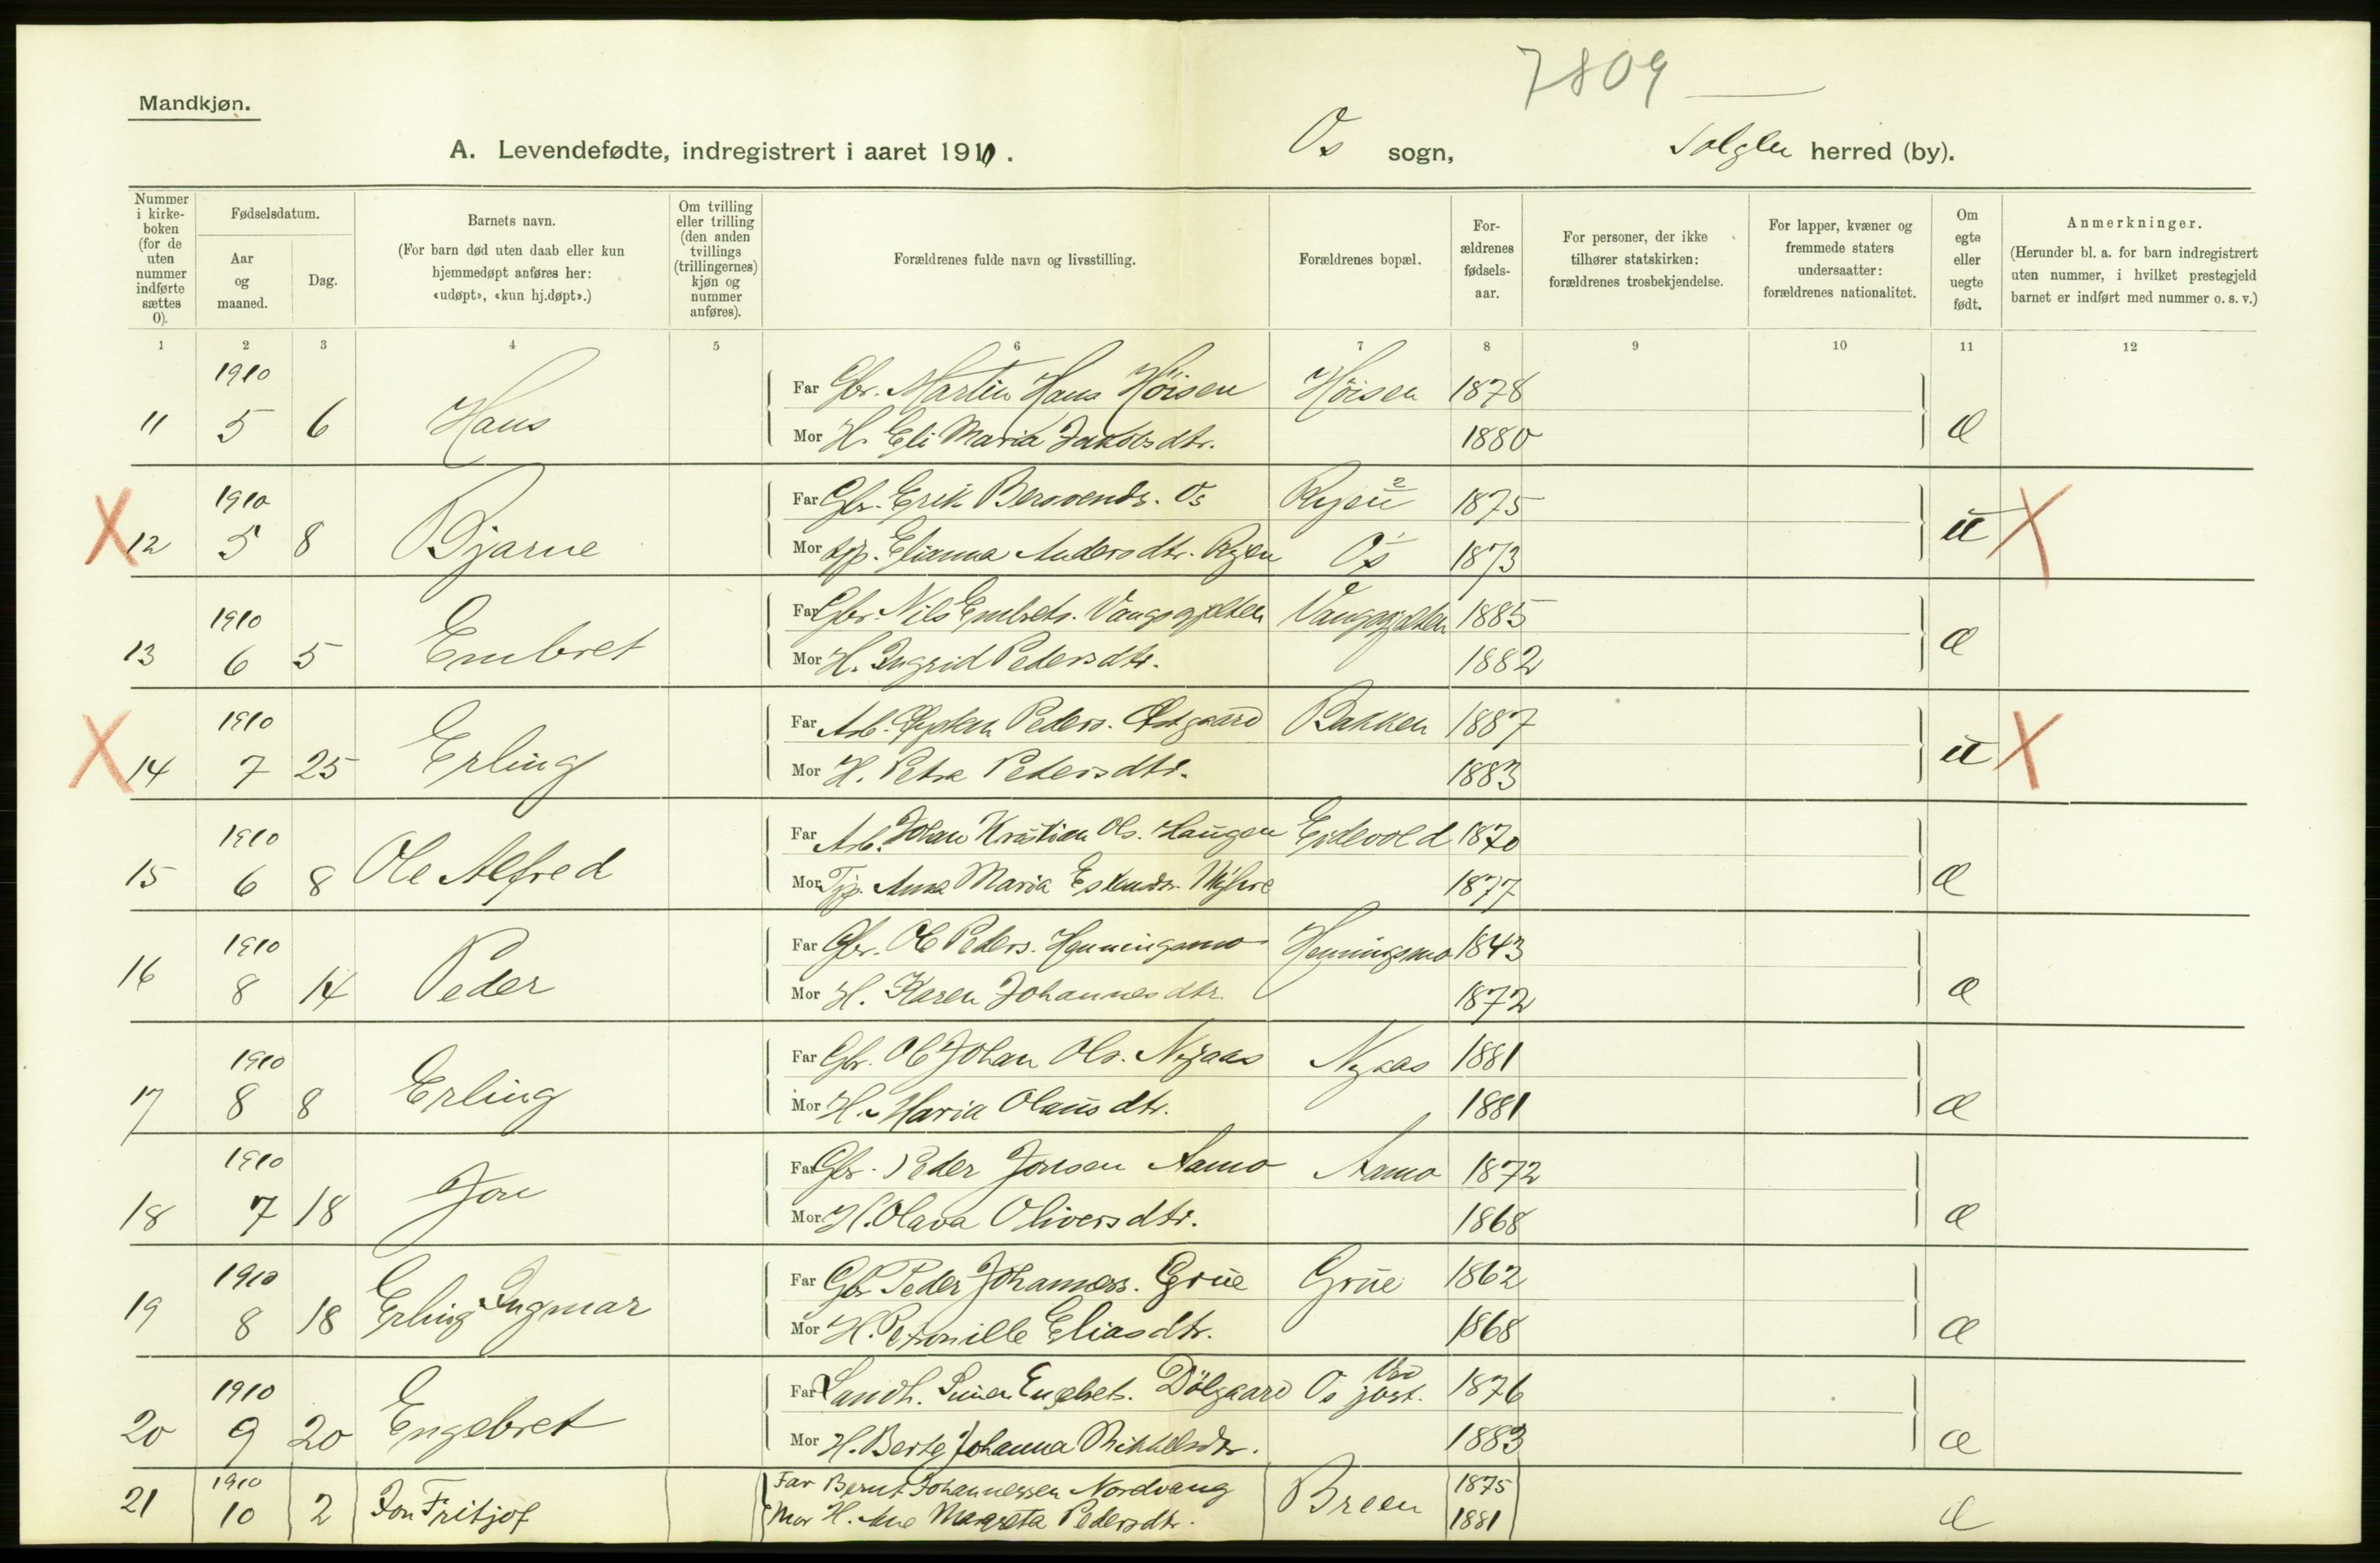 7809
Mandkjøn.
A. Levendefødte, indregistrert i aaret 1910. Os sogn, Tolgen herred (by).
Nummer i kirke-boken (for de uten nummer indførte sættes 0).
Fødselsdatum.
Aar og maaned.
Dag.
Barnets navn.
(For barn død uten daab eller kun hjemmedøpt anføres her: «udøpt», «kun hj.døpt».)
Om tvilling eller trilling (den anden tvillings (trillingernes) kjøn og nummer anføres).
Forældrenes fulde navn og livsstilling.
Forældrenes bopæl.
For-ældrenes fødsels-aar.
For personer, der ikke tilhører statskirken: forældrenes trosbekjendelse.
For lapper, kvæner og fremmede staters undersaatter: forældrenes nationalitet.
Om egte eller uegte født.
Anmerkninger.
(Herunder bl. a. for barn indregistrert uten nummer, i hvilket prestegjeld barnet er indført med nummer o. s. v.)
1 2 3 4 5 6 7 8 9 10 11 12
1910 Far Gbr. Martin Hans Höisen Höisen 1878
11 5 6 Hans Mor H. Eli Maria Jakobsdtr. 1880 æ
1910 Far Gbr. Erik Bersvends. Os Ryen 2 1875
X 12 5 8 Bjarne Mor tjp. Elianna Andersdtr. Ryen Os 1 1873 u X
1910 Far Gbr. Nils Embrets. Vangsgjelten Vangsgjelten 1885
13 6 5 Embret Mor H. Ingrid Pedersdtr. 1882 æ
1910 Far Arb. Peders. Østgaard Bakken 1887
X 14 7 25 Erling Mor H. Petra Pedersdtr. 1883 u X
1910 Far Arb. Johan Kristian Ols. Haugen Eidsvold 1870
15 6 8 Ole Alfred Mor Tjp. Anna Maria Myhre 1877 æ
1910 Far Gbr. Ole Peders. Henningsmo Henningsmo 1843
16 8 14 Peder Mor H. Karen Johannesdtr. 1872 æ
1910 Far Gbr. Ole Johan Ols. Nyaas Nyaas 1881
17 8 8 Erling Mor H. Maria Olausdtr. 1881 æ
1910 Far Gbr. Peder Jonsen Aamo Aamo 1872
18 7 18 Jon Mor H. Olava Oliversdtr. 1868 æ
1910 Far Gbr. Peder Johanness. Grue Grue 1862
19 8 18 Erling Ingmar Mor H. Petronille Eliasdtr. 1868 æ
1910 Far Landh. Engebrets. Dölgaard Os 1876
20 9 20 Engebret Mor H. Berte Johanna Mikkelsdtr. 1883 æ
1910 Far Bernt Johannessen Nordvang Breen 1875
21 10 2 Jon Fritjof Mor H. Ane Margreta Pedersdtr. 1881 æ